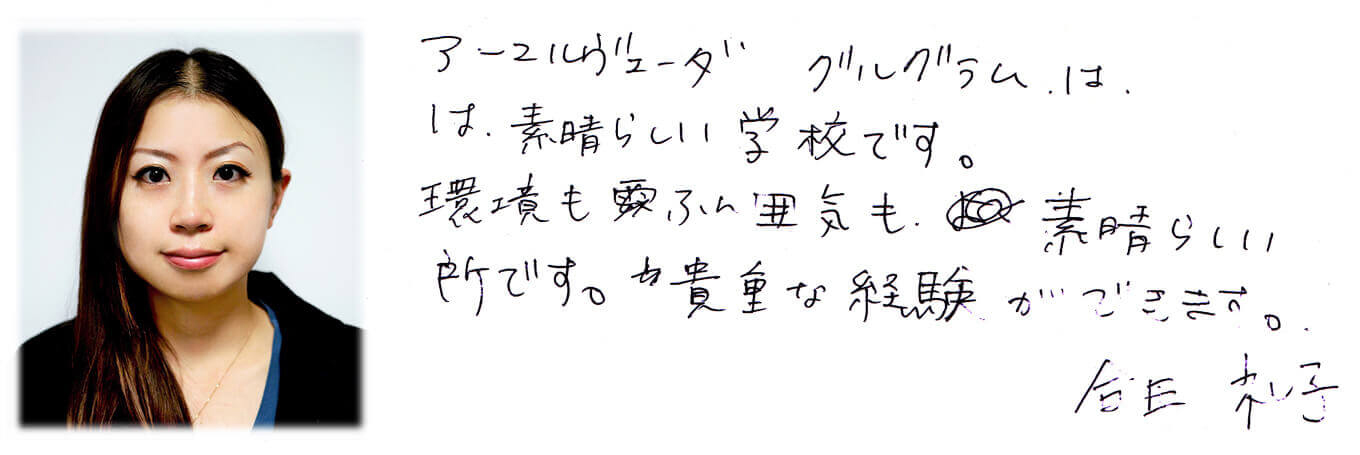 アーユルヴェーダ グルグラム.は.
は.素晴らしい学校です。
環境もふん囲気も.素晴らしい
所です。貴重な経験ができます。.
子